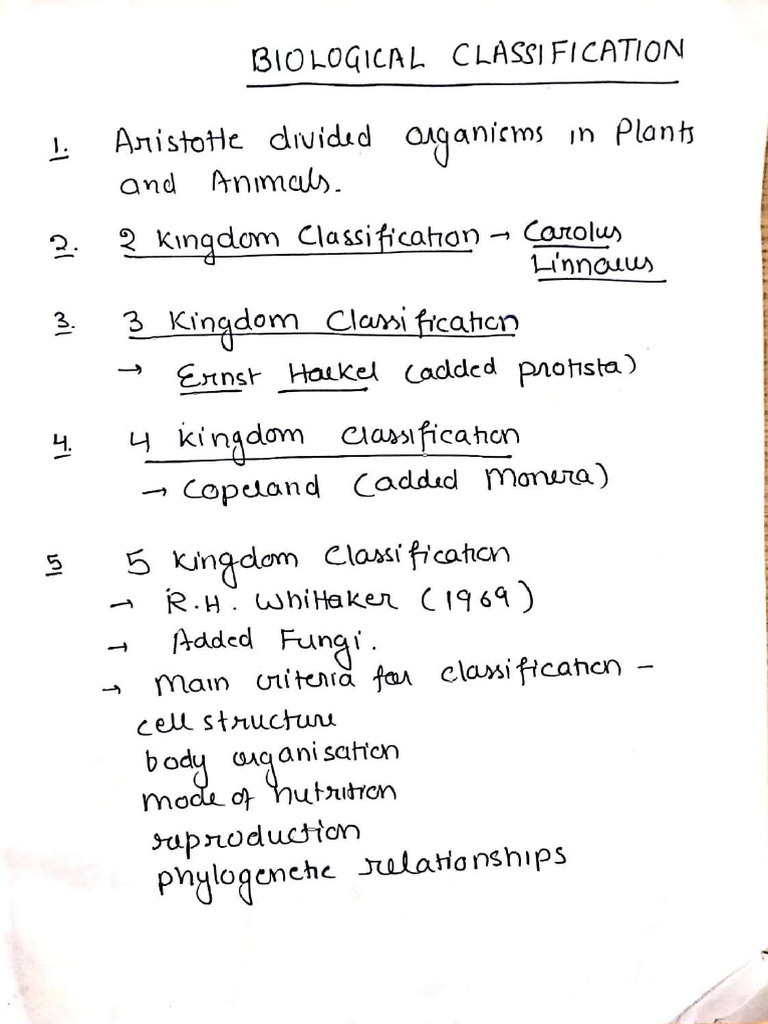 BIOLOGICAL CLASSIFICATION
1. Aristotle divided organisms in Plants
and Animals.
2. 2 Kingdom Classification → Carolus
Linnaeus
3. 3 Kingdom Classification
→ Ernst Haekel (added protista)
4. 4 kingdom classification
→ Copeland (added Monera)
5 5 Kingdom Classification
→ R.H. Whittaker (1969)
→ Added Fungi.
→ Main criteria for classification -
cell structure
body organisation
mode of nutrition
reproduction
phylogenetic relationships